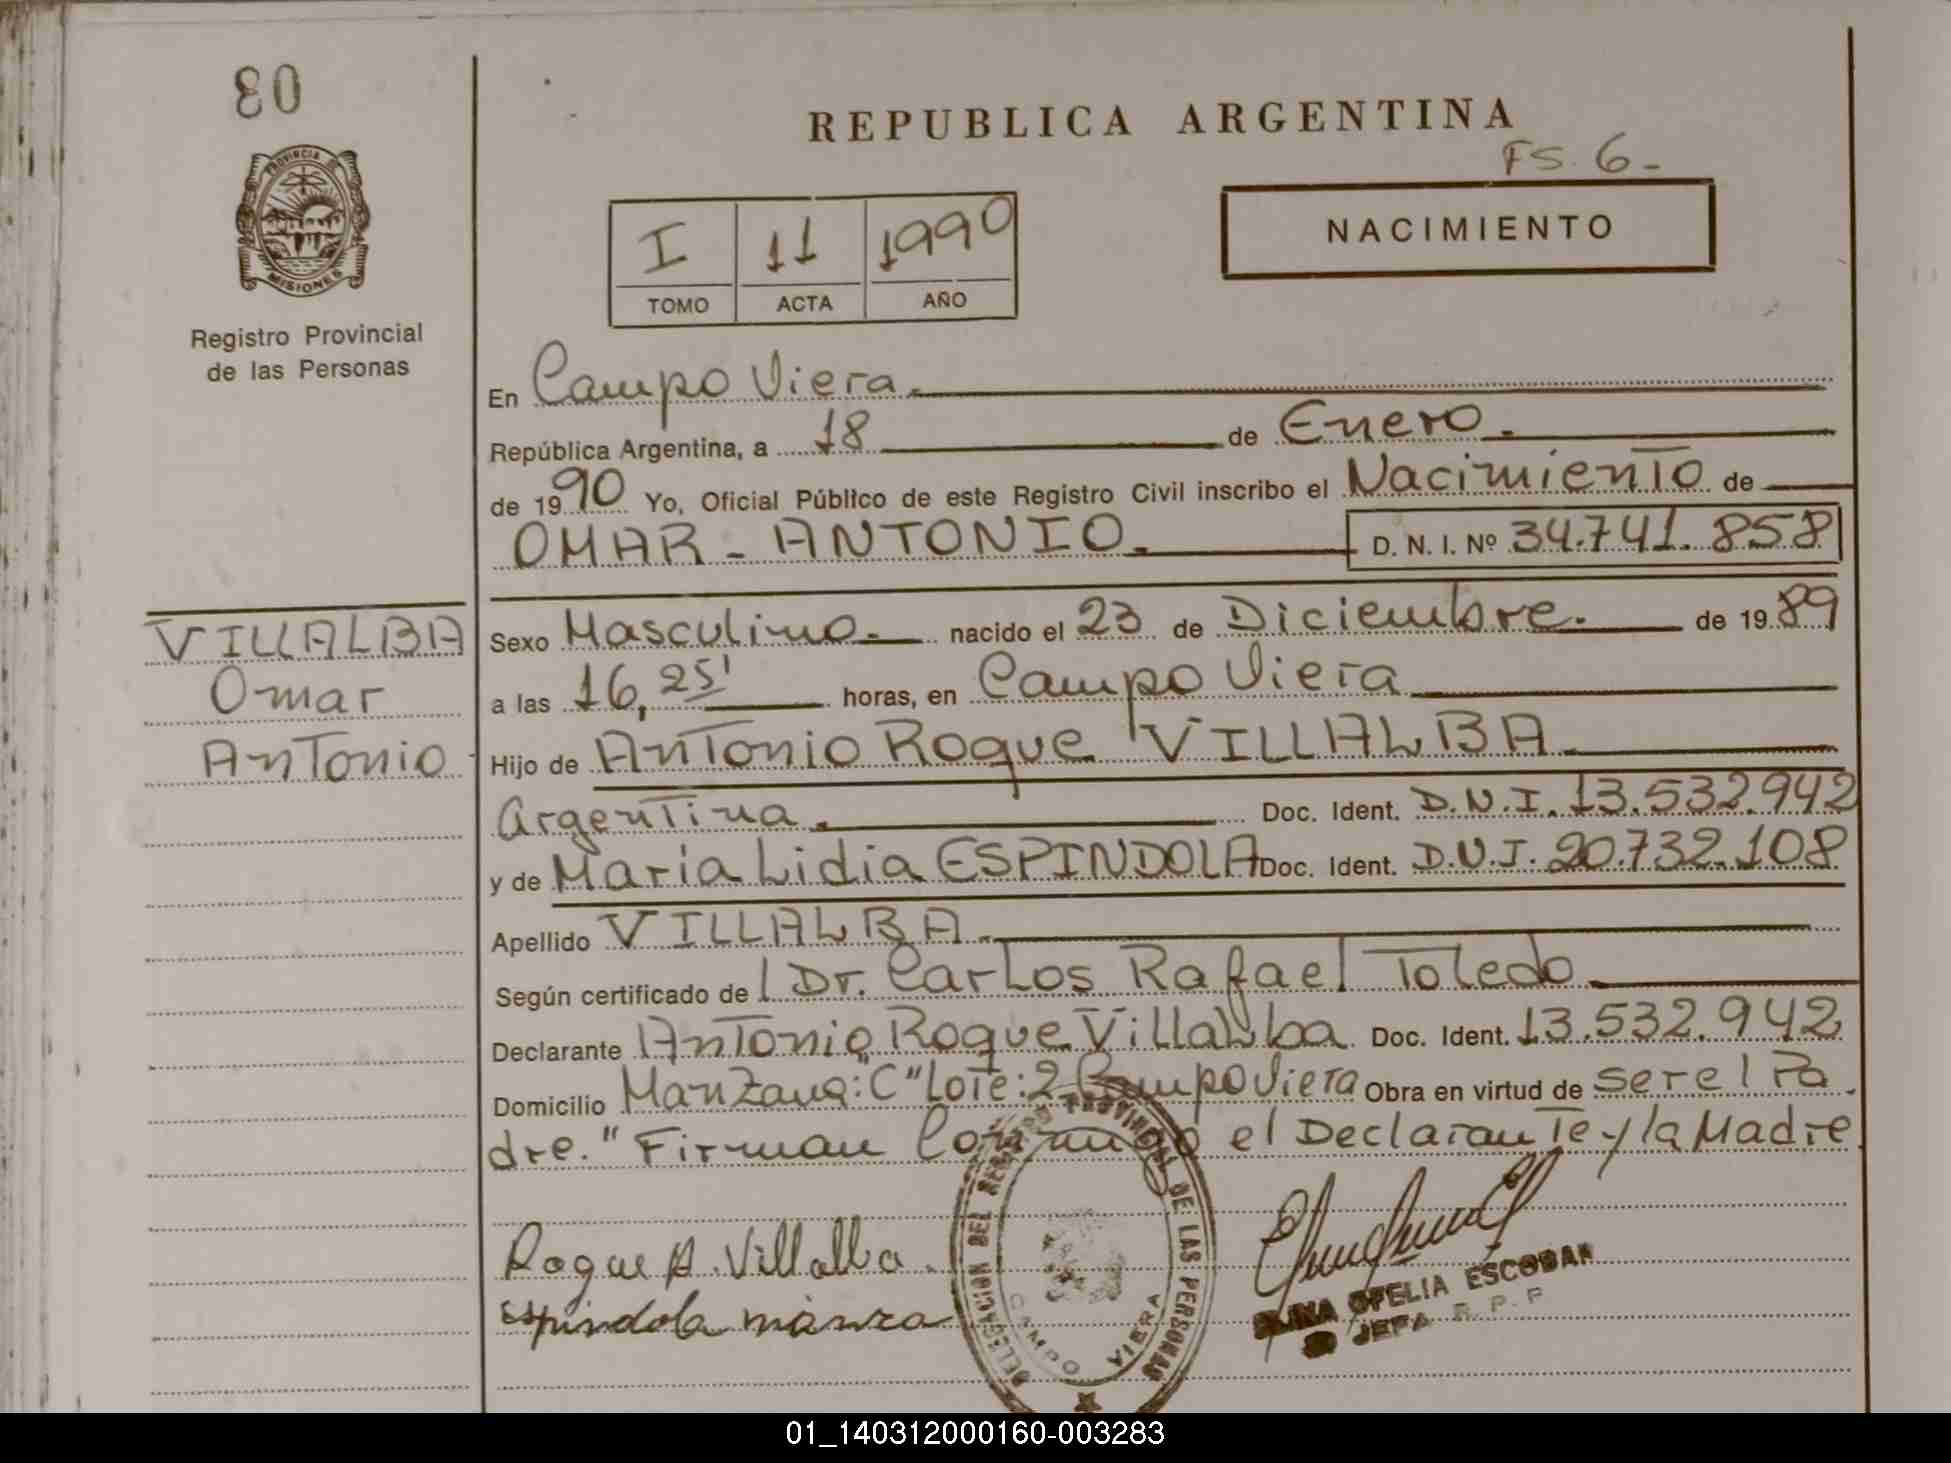 80
PROVINCIA DE
MISIONES
Registro Provincial
de las Personas
REPUBLICA ARGENTINA
FS. 6-
NACIMIENTO
I 11 1990
TOMO ACTA AÑO
En Campo Viera.
República Argentina, a 18 de Enero.
de 1990 Yo, Oficial Público de este Registro Civil inscribo el Nacimiento de
OMAR - ANTONIO. D. N. I. Nº 34.741.858
VILLALBA
Omar
Antonio
Sexo Masculino. nacido el 23 de Diciembre. de 1989
a las 16,25' horas, en Campo Viera
Hijo de Antonio Roque VILLALBA.
Argentina. Doc. Ident. D.N.I. 13.532.942
y de María Lidia ESPINDOLA Doc. Ident. D.N.I. 20.732.108
Apellido VILLALBA.
Según certificado de Dr. Carlos Rafael Toledo.
Declarante Antonio Roque Villalba Doc. Ident. 13.532.942
Domicilio Manzana: "C" Lote: 2 Campo Viera Obra en virtud de ser el Pa
dre." Firman Conmigo el Declarante y la Madre
Roque A. Villalba.
Espindola maria
DELEGACION DEL REGISTRO PROVINCIAL DE LAS PERSONAS
CAMPO VIERA
OFELIA ESCOBAR
JEFA R. P. P
01_140312000160-003283